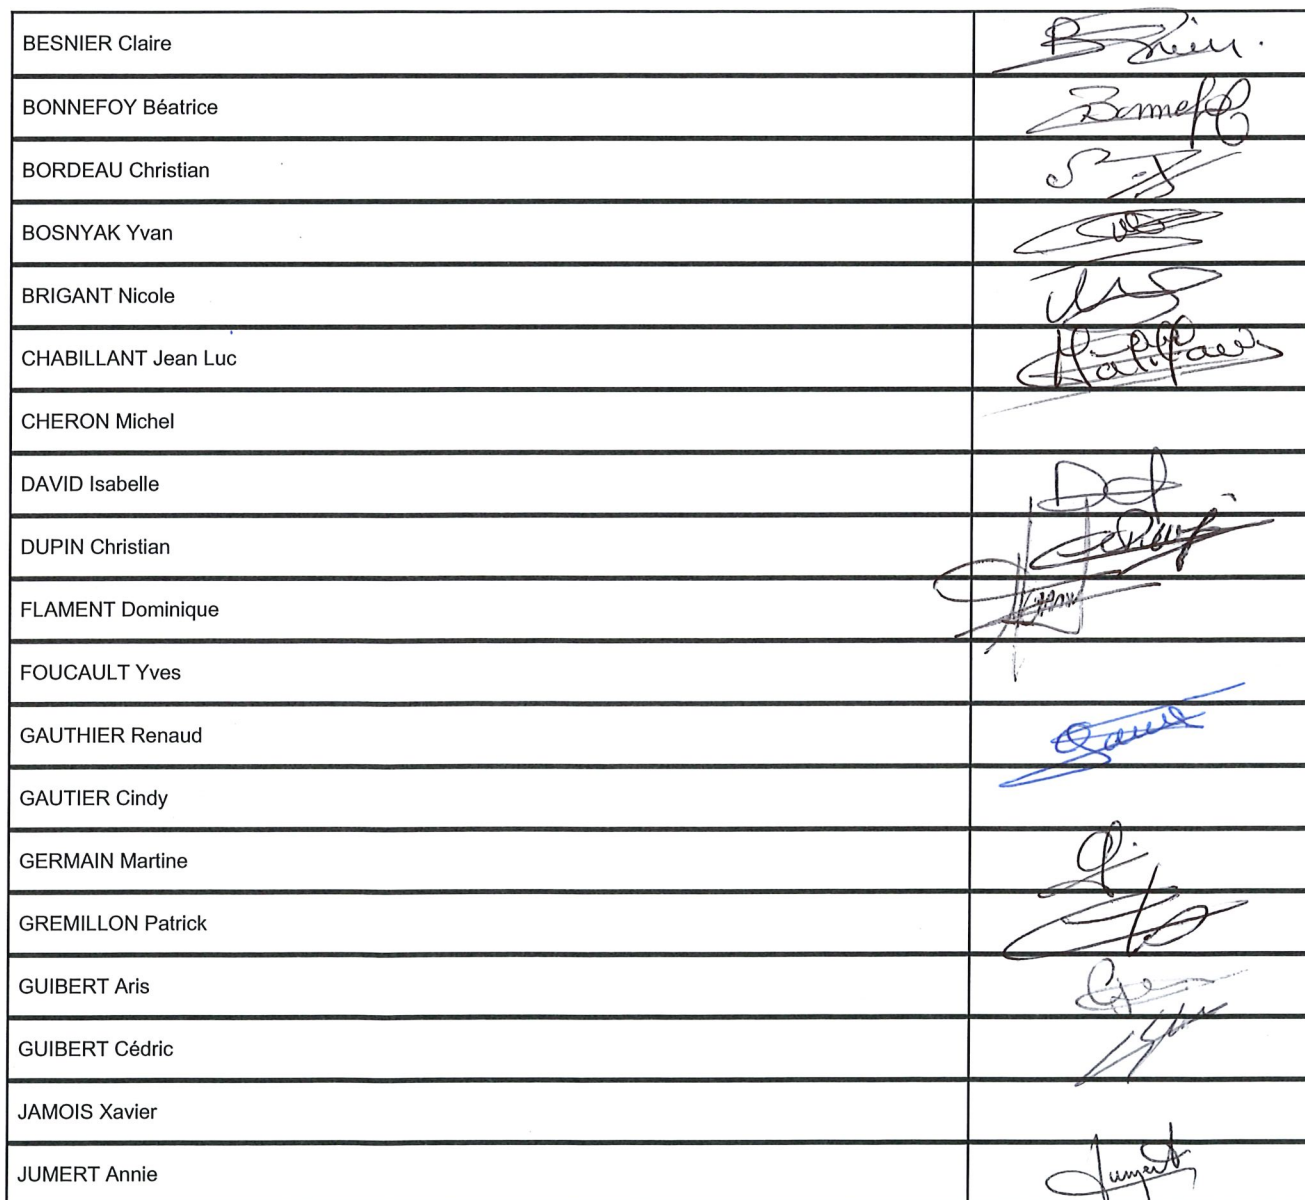 BESNIER Claire
BONNEFOY Béatrice
BORDEAU Christian
BOSNYAK Yvan
BRIGANT Nicole
CHABILLANT Jean Luc
CHERON Michel
DAVID Isabelle
DUPIN Christian
FLAMENT Dominique
FOUCAULT Yves
GAUTHIER Renaud
GAUTIER Cindy
GERMAIN Martine
GREMILLON Patrick
GUIBERT Aris
GUIBERT Cédric
JAMOIS Xavier
JUMERT Annie Jumert